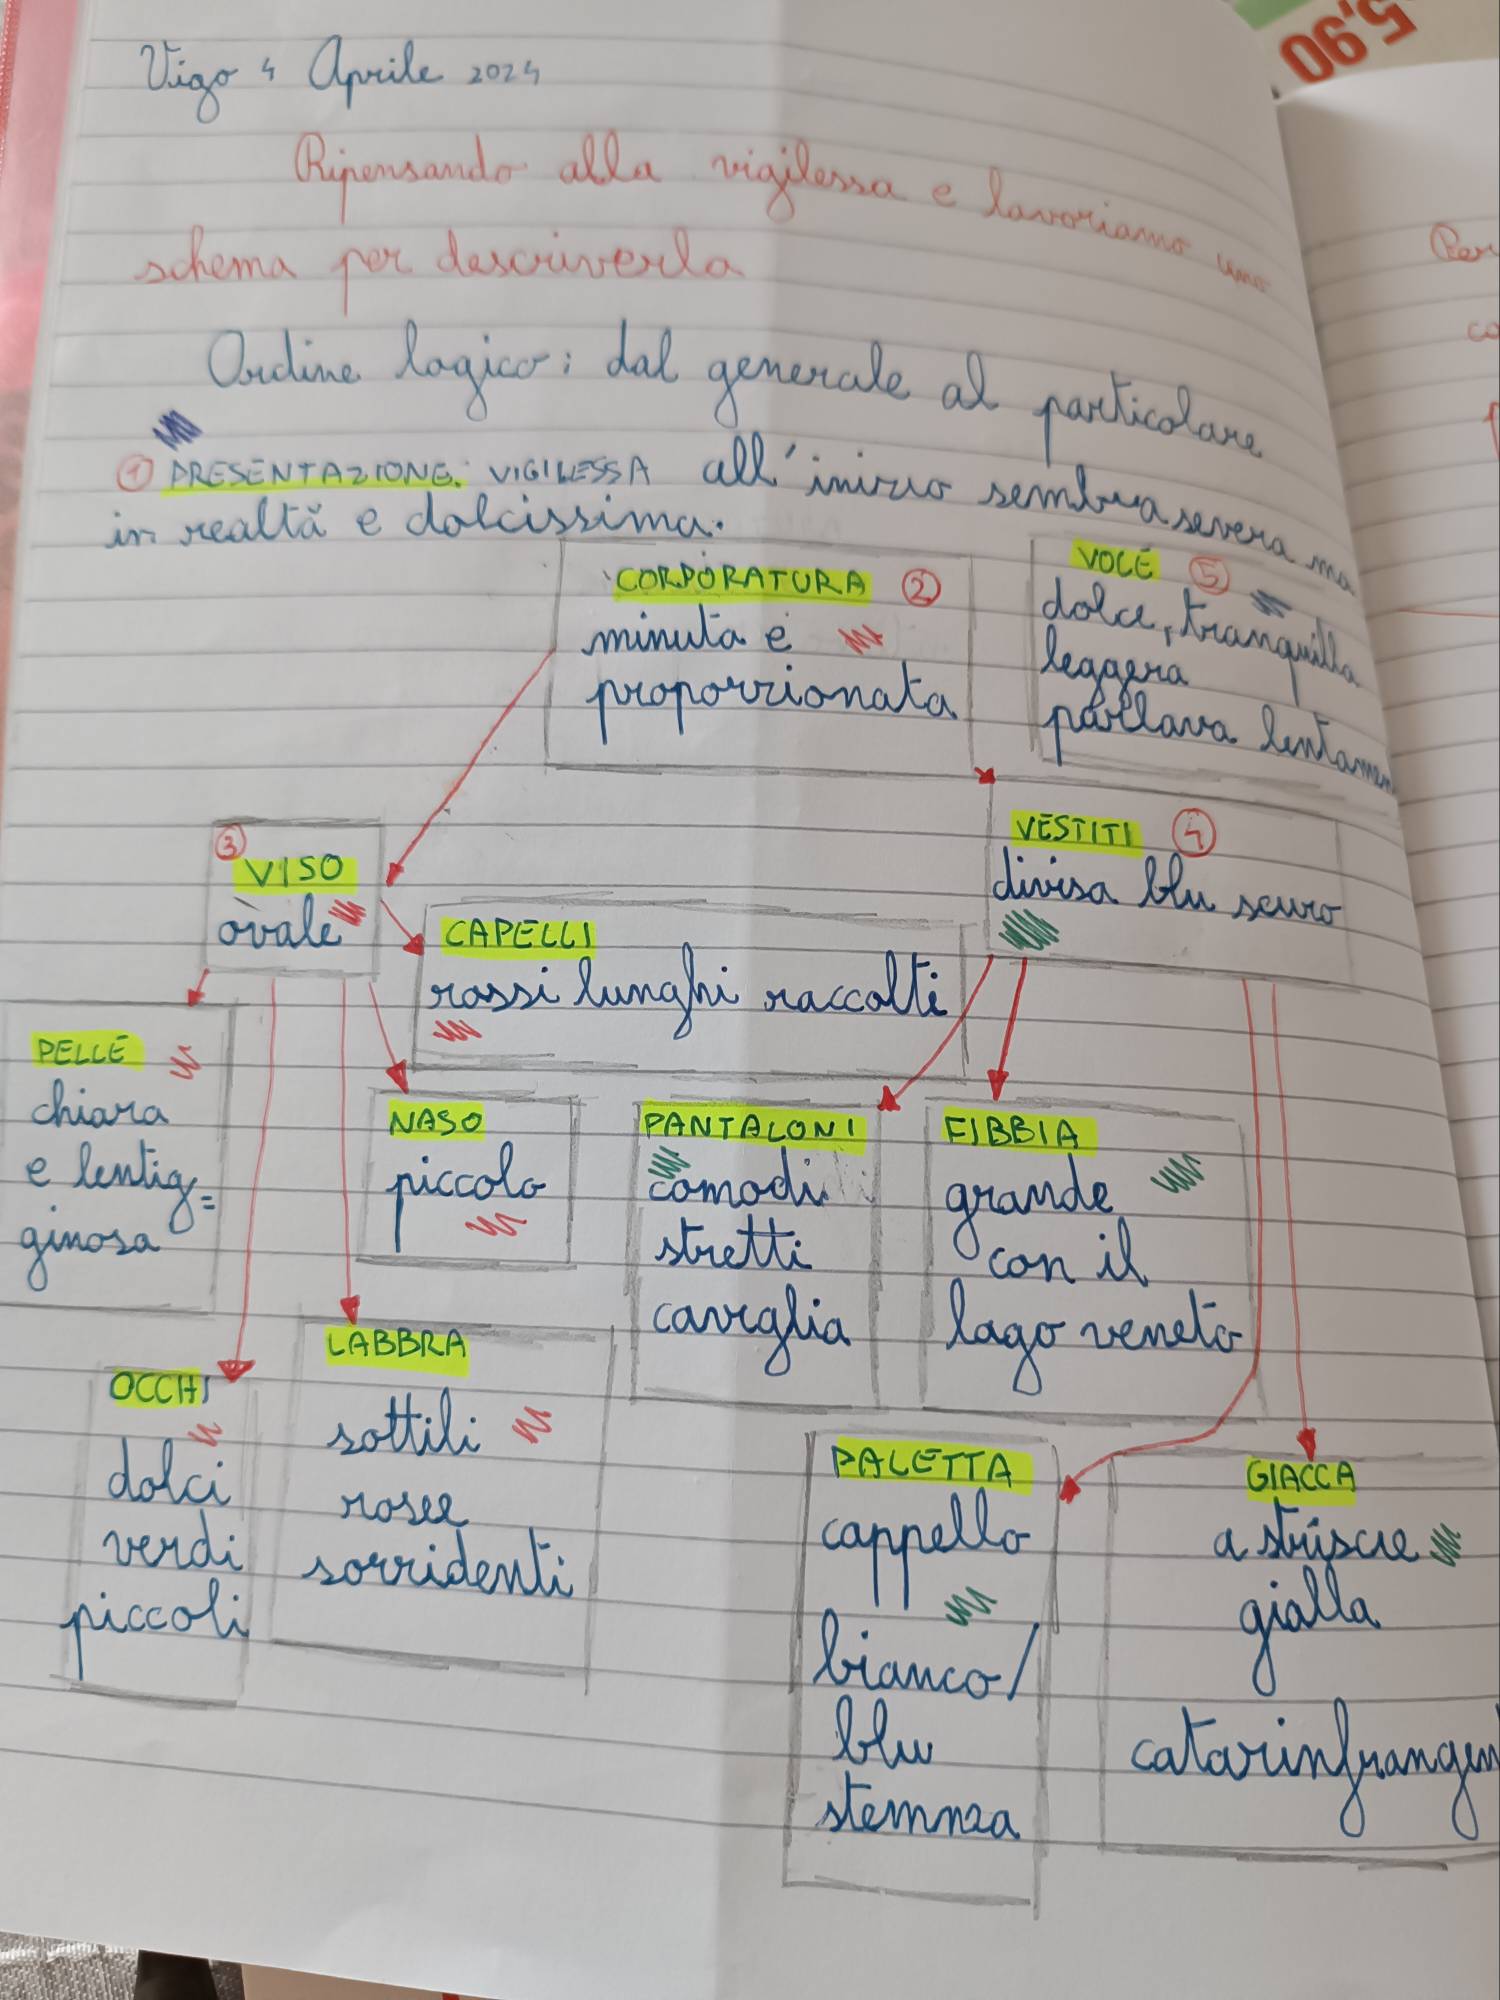 Vigo 4 Aprile 2024
5,90
Ripensando alla vigilessa e lavoriamo uno
schema per descriverla
Ordine logico: dal generale al particolare
1 PRESENTAZIONE: VIGILESSA all'inizio sembra severa ma
in realtà e dolcissima.
CORPORATURA 2
minuta e
proporzionata
VOCE 5
dolce, tranquilla
leggera
parlava lentamen
3
VISO
ovale
VESTITI 4
divisa blu scuro
CAPELLI
rossi lunghi raccolti
PELLE
chiara
e lentig=
ginosa
NASO
piccolo
PANTALONI
comodi
stretti
caviglia
FIBBIA
grande
con il
lago veneto
OCCHI
dolci
verdi
piccoli
LABBRA
sottili
rosee
sorridenti
PALETTA
cappello
bianco/
blu
stemma
GIACCA
a striscie
gialla
catarinfrangen
Per
co